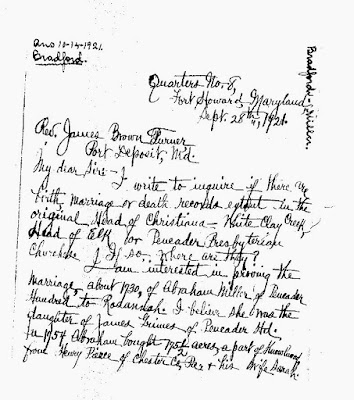 Ans 10-14-1921.
Bradford.
Bradford-Miller.
Quarters No. 8,
Fort Howard, Maryland
Sept. 28th, 1921.
Rev. James Brown Turner
Port Deposit, Md.
My dear Sir:- I write to inquire if there are
birth, marriage or death records extant in the
original Head of Christiana - White Clay Creek,
Head of Elk or Pencader Presbyterian
Churches. If so, where are they?
I am interested in proving the
marriage, about 1730, of Abraham Miller of Pencader
Hundred, to Rosannah. I believe she was the
daughter of James Grimes of Pencader Hd.
In 1754 Abraham bought 795½ acres, a part of
from Henry Pierce of Chester Co., Pa. & his wife Sarah